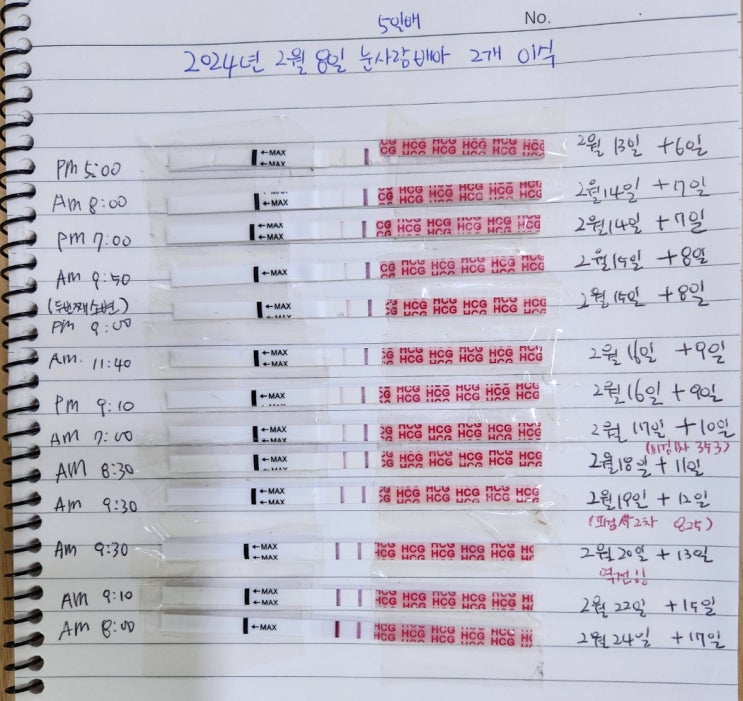 5일배 No.
2024년 2월 8일 눈사람배아 2개 이식
PM 5:00 ←MAX ←MAX HCG HCG HCG HCG HCG 2월 13일 +6일
Am 8:00 ←MAX HCG HCG HCG HCG HCG 2월 14일 +7일
PM 7:00 ←MAX HCG HCG HCG HCG HCG 2월 14일 +7일
AM 9:50 ←MAX HCG HCG HCG HCG HCG 2월 15일 +8일
(두번째 소변)
PM 9:00 ←MAX HCG HCG HCG HCG HCG 2월 15일 +8일
AM. 11:40 ←MAX ←MAX HCG HCG HCG HCG HCG 2월 16일 +9일
PM 9:10 ←MAX HCG HCG HCG HCG HCG 2월 16일 +9일
AM 7:00 ←MAX ←MAX HCG HCG HCG HCG HCG 2월 17일 +10일
(피검사 353)
AM 8:30 ←MAX ←MAX HCG HCG HCG HCG HCG 2월 18일 +11일
AM 9:30 ←MAX ←MAX HCG HCG HCG HCG HCG 2월 19일 +12일
2차 825)
Am 9:30 ←MAX ←MAX HCG HCG HCG HCG HCG 2월 20일 +13일
역전!!
AM 9:10 ←MAX ←MAX HCG HCG HCG HCG 2월 22일 +15일
AM 8:00 ←MAX HCG HCG HCG HCG 2월 24일 +17일